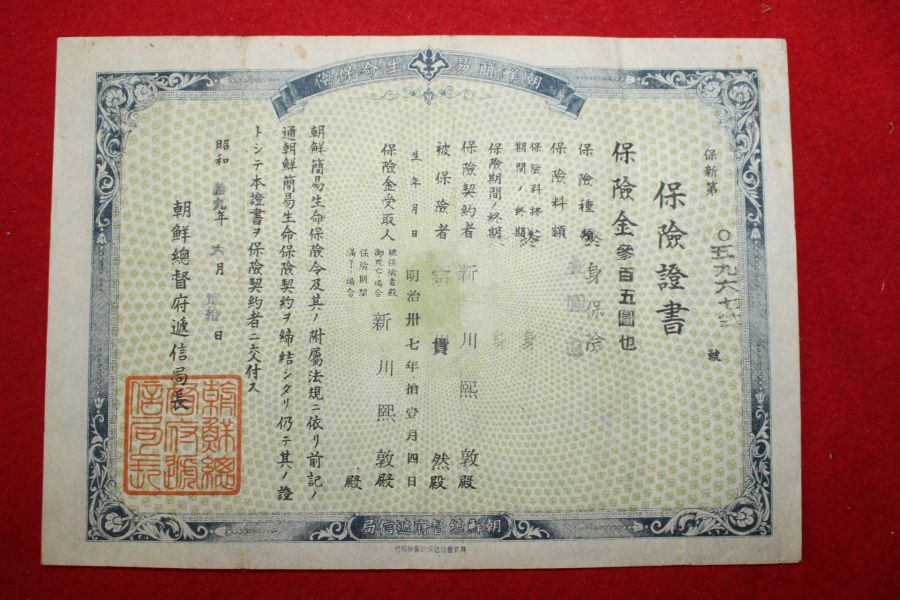 朝鮮簡易生命保險
保新第
號
保險證書
保險金參百五圓也
保險種類 終身保險
保險料額
保險料拂込
期間ノ終期 終身
保險期間ノ終期 終身
保險契約者 新川熙敦殿
被保險者 然殿
生年月日 明治卅七年拾壹月四日
保險金受取人
被保險者殿
御死亡場合
保險期間
滿了ノ場合
新川熙敦殿
殿
朝鮮簡易生命保險令及其ノ附屬法規ニ依リ前記ノ
通朝鮮簡易生命保險契約ヲ締結シタリ仍テ其ノ證
トシテ本證書ヲ保險契約者ニ交付ス
昭和拾九年六月 日
朝鮮總督府遞信局長
朝鮮總督府遞信局長
朝鮮總督府遞信局